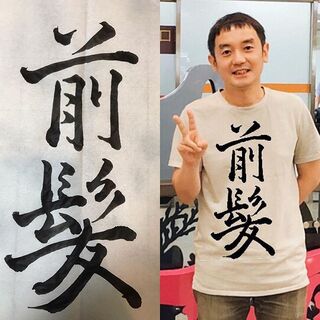 前髪
前髪